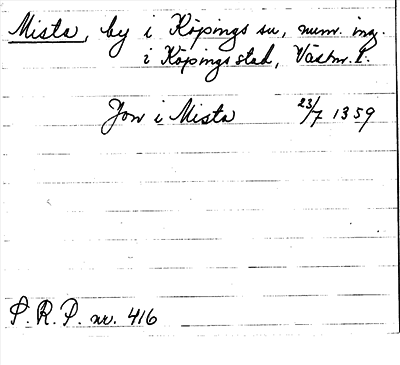 Mista, by i Köpings sn, num. ing.
i Köpings stad, Västm. l.
Jon i Mista 23/7 1359
S. R. P. nr. 416